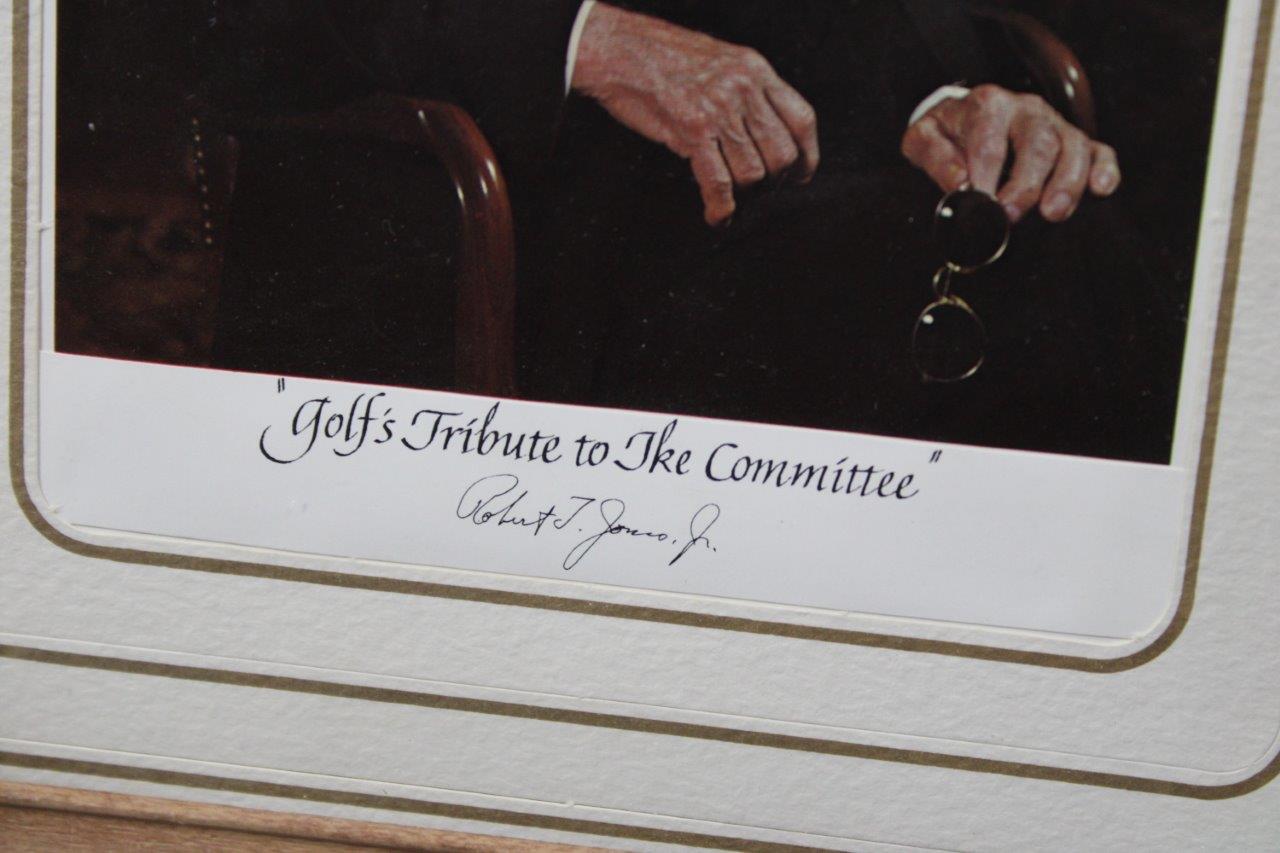 "Golf's Tribute to Ike Committee"
Robert T. Jones, Jr.